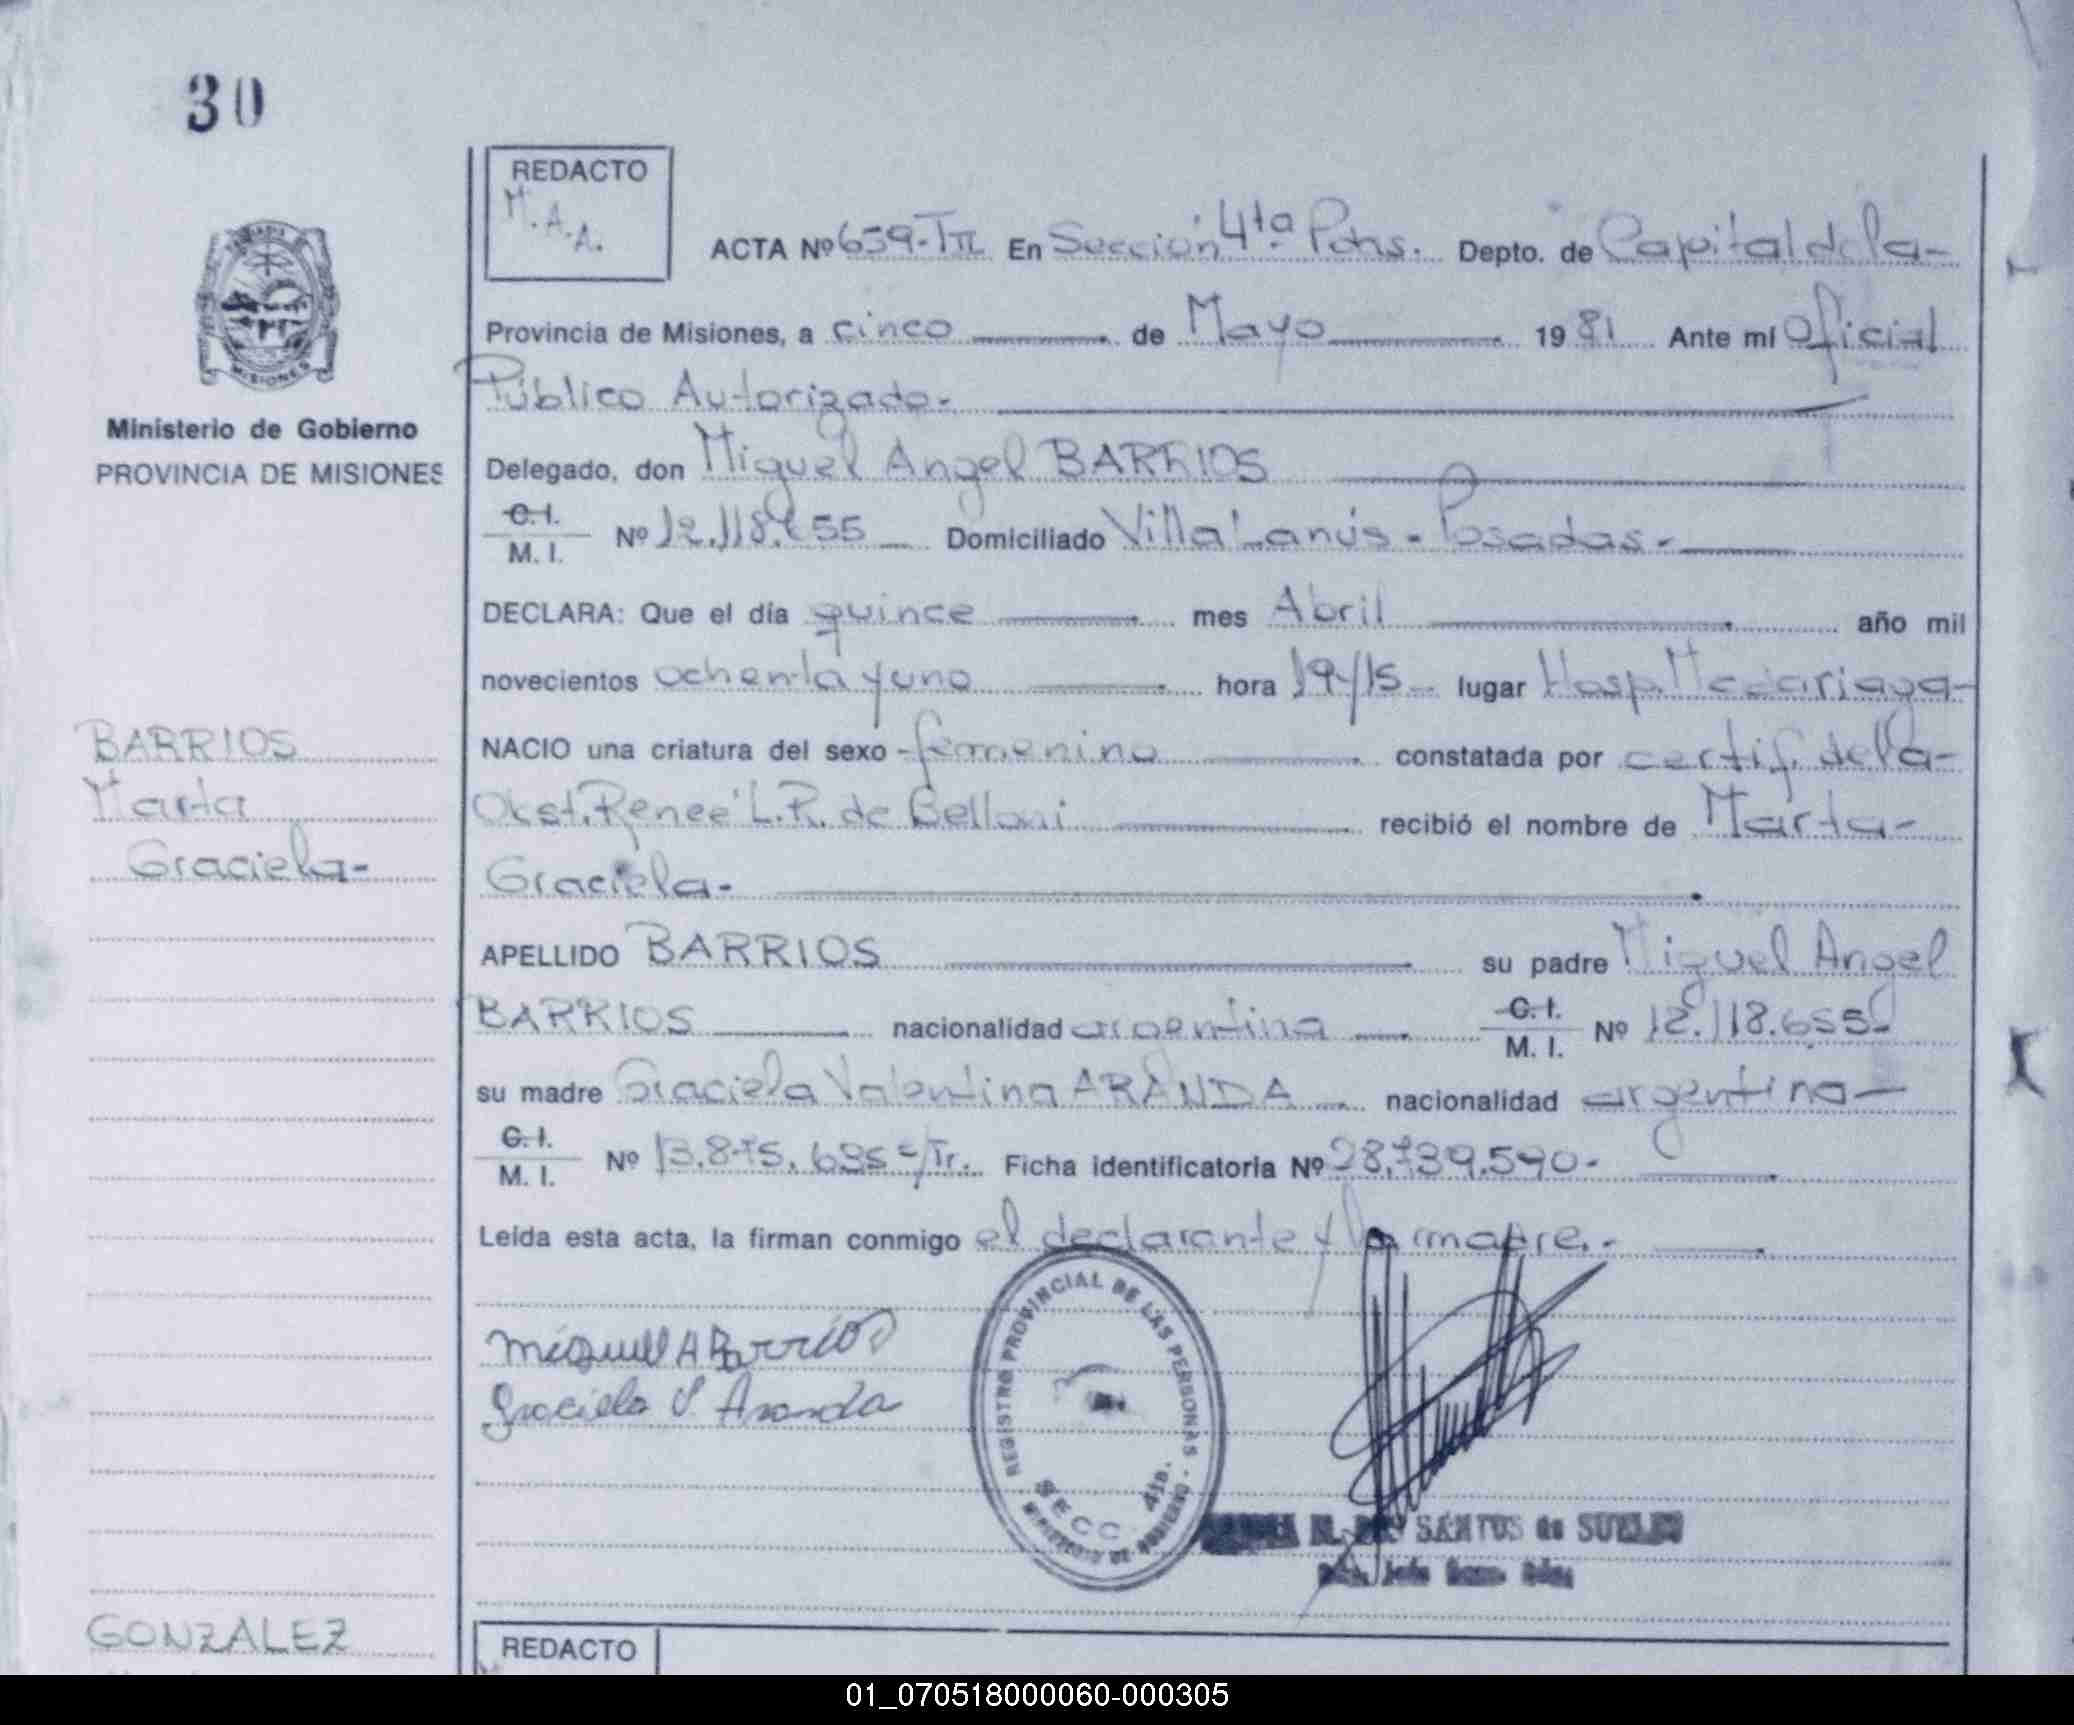 30
REDACTO
M.A.A.
ACTA Nº 659-TII En Sección 4ta Pdas. Depto. de Capital de la-
MISIONES
Provincia de Misiones, a cinco de Mayo 1981 Ante mi Oficial
Público Autorizado.-
Ministerio de Gobierno
PROVINCIA DE MISIONES
Delegado, don Miguel Angel BARRIOS
C.I.
M. I. Nº 12.118.655 Domiciliado Villa Lanús - Posadas.-
DECLARA: Que el día quince mes Abril año mil
novecientos ochenta y uno hora 19/15 lugar Hosp. Madariaga-
BARRIOS
Marta
Graciela-
NACIO una criatura del sexo femenino constatada por certif. de la-
Obst. Reneé L.R. de Belloni recibió el nombre de Marta-
Graciela-
APELLIDO BARRIOS su padre Miguel Angel
BARRIOS nacionalidad argentina C.I. M. I. Nº 12.118.655-
su madre Graciela Valentina ARANDA nacionalidad argentina-
C.I.
M. I. Nº 13.875.695 c/Tr. Ficha identificatoria Nº 28.739.590-
Leída esta acta, la firman conmigo el declarante y la madre.-
Miguel A Barrios
Graciela V. Aranda
REGISTRO PROVINCIAL DE LAS PERSONAS - MINISTERIO DE GOBIERNO
SECC. 4ta.
SANTOS de SUELDO
GONZALEZ
REDACTO
01_070518000060-000305